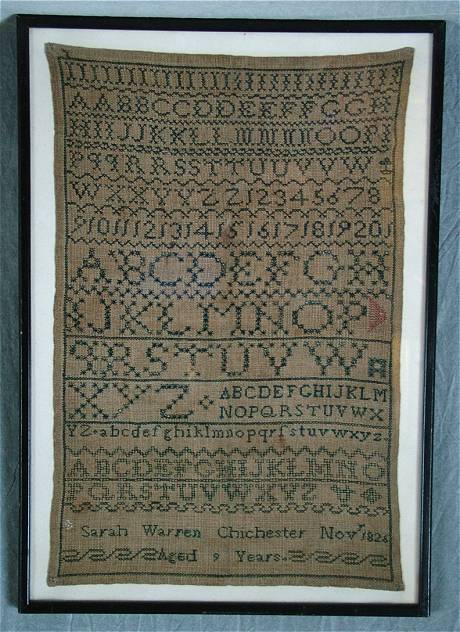 AABBCCDDEEFFGGH
HIIJJKKLLMMNNOOPP
PqqRRSSTTUUVVW
WXXYYZZ12345678
9 10 11 12 13 14 15 16 17 18 19 20
ABCDEFGH
IJKLMNOP
QRSTUVW
XXYZ
ABCDEFGHIJKLM
NOPQRSTUVWX
YZ abcdefghiklmnopqrſstuvwxyz
ABCDEFGHIJKLMNO
QRSTUVWXYZ
Sarah Warren Chichester Novr 1826
Aged 9 Years